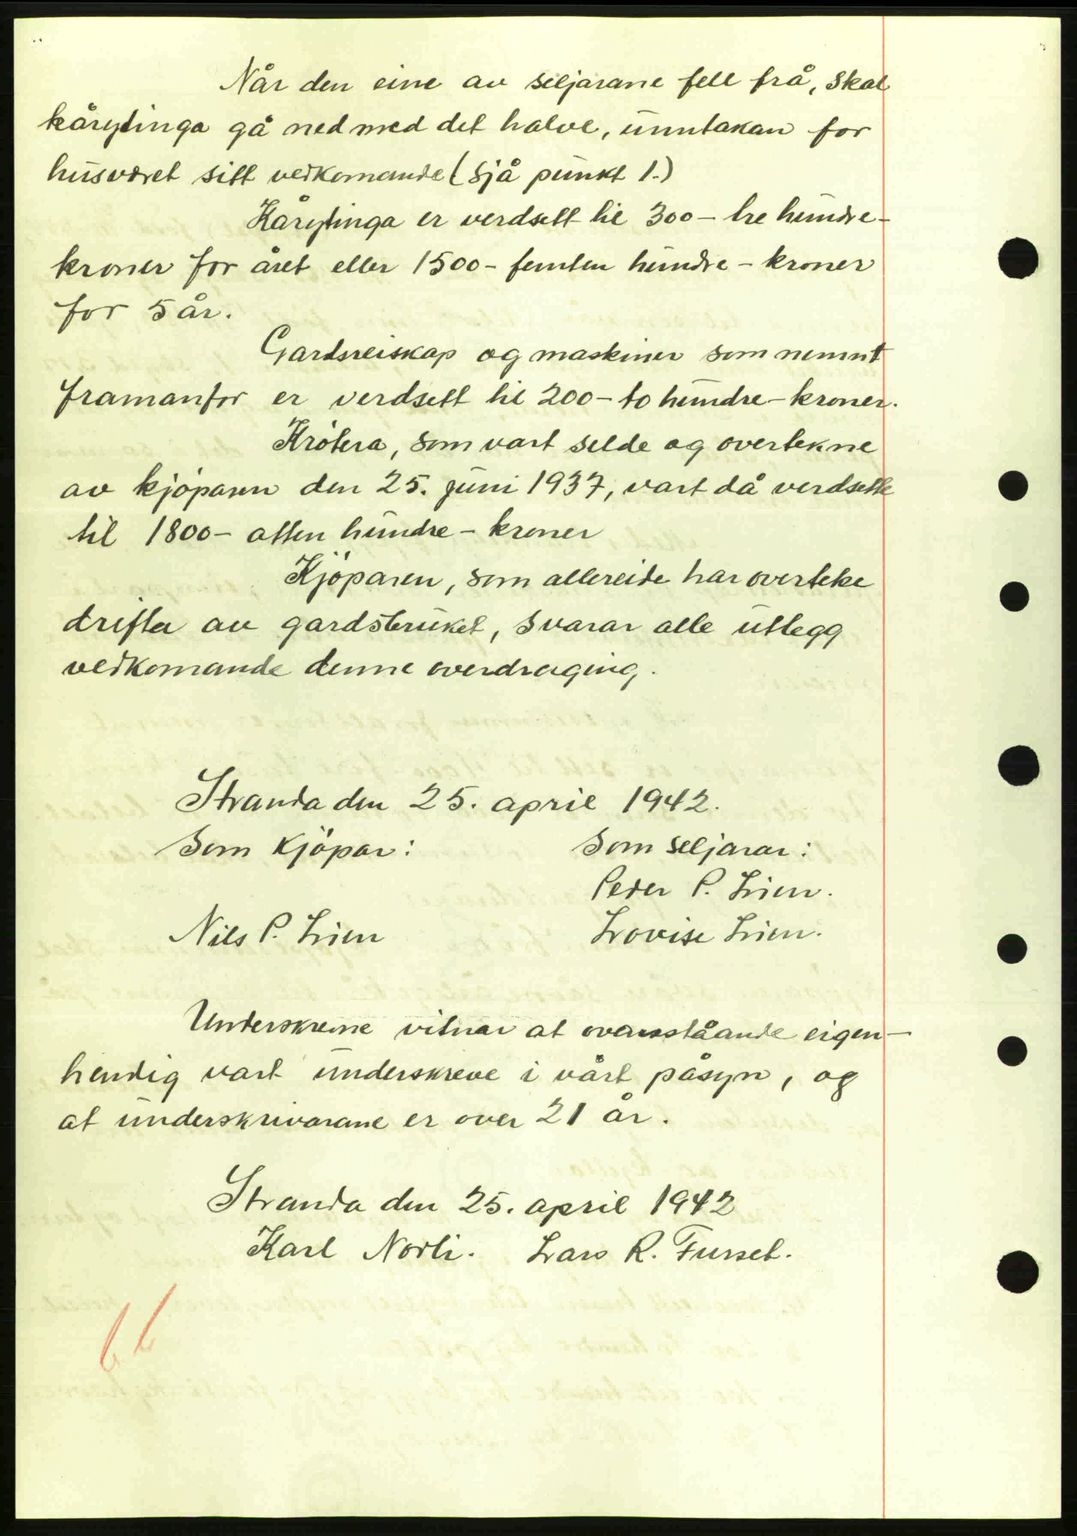 Når den eine av seljarane fell frå, skal
kårytinga gå ned med det halve, unntakan for
husværet sitt vedkomande (sjå punkt 1.)
Kårytinga er verdsett til 300 - tre hundre -
kroner for året eller 1500 - femten hundre - kroner
for 5 år.
Gardsreiskap og maskiner som nemnt
framanfor er verdsett til 200 - to hundre - kroner.
Krøtera, som vart selde og overtekne
av kjöparen den 25. juni 1937, vart då verdsette
til 1800 - atten hundre - kroner
Kjöparen, som allereide har overteke
drifta av gardsbruket, svarar alle utlegg
vedkomande denne overdraging.
Stranda den 25. april 1942.
Som kjöpar: Som seljarar:
Peder P. Lien.
Nils P. Lien Lovise Lien.
Underskrivne vitnar at ovanståande eigen-
hendig vart underskreve i vårt påsyn, og
at underskrivarane er over 21 år.
Stranda den 25. april 1942
Karl Norli. Lars R. Furset.